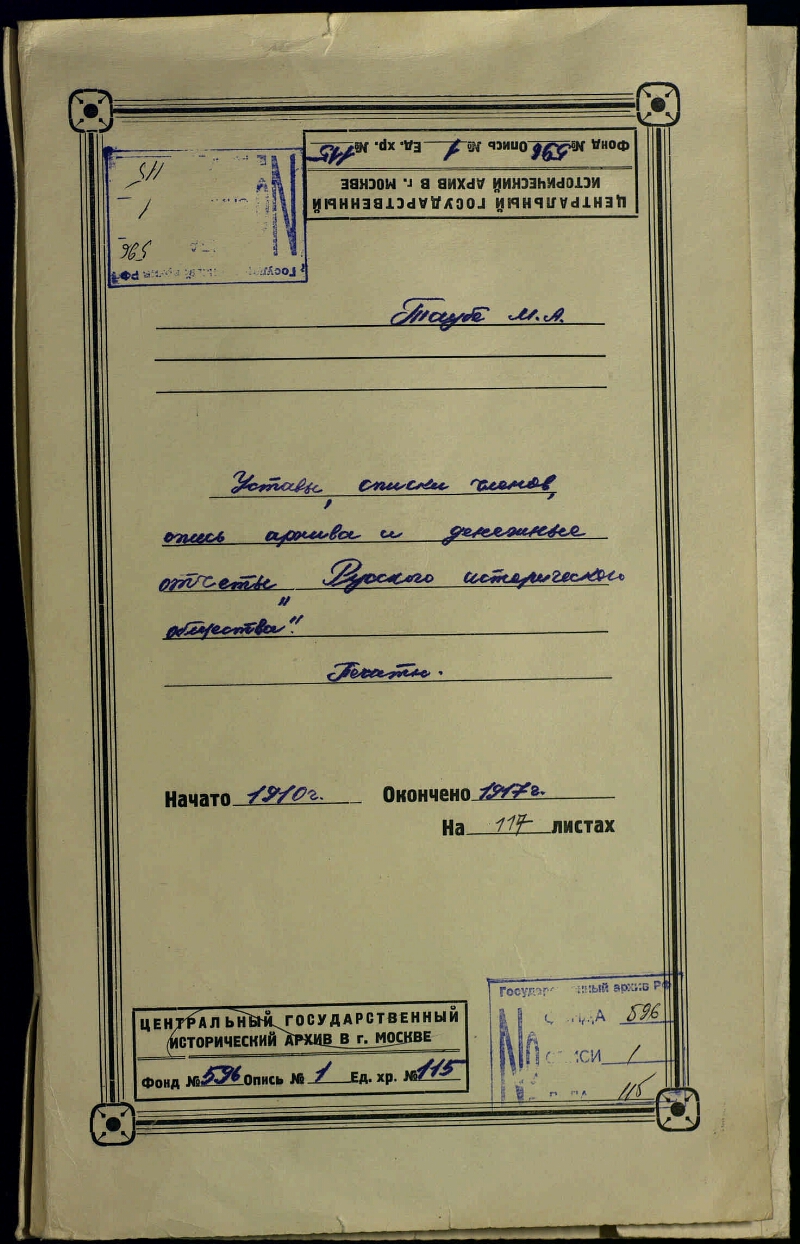 ЦЕНТРАЛЬНЫЙ ГОСУДАРСТВЕННЫЙ
ИСТОРИЧЕСКИЙ АРХИВ В г. МОСКВЕ
Фонд № 596 Опись № 1 Ед. хр. № 115
596
1
115
Таубе М.А.
Уставы, списки членов,
опись архива и денежные
отчеты "Русского исторического
общества".
Печатн.
Начато 1910г. Окончено 1917г.
На 117 листах
ЦЕНТРАЛЬНЫЙ ГОСУДАРСТВЕННЫЙ
ИСТОРИЧЕСКИЙ АРХИВ В г. МОСКВЕ
Фонд № 596 Опись № 1 Ед. хр. № 115
архив РФ
№ 596
1
115